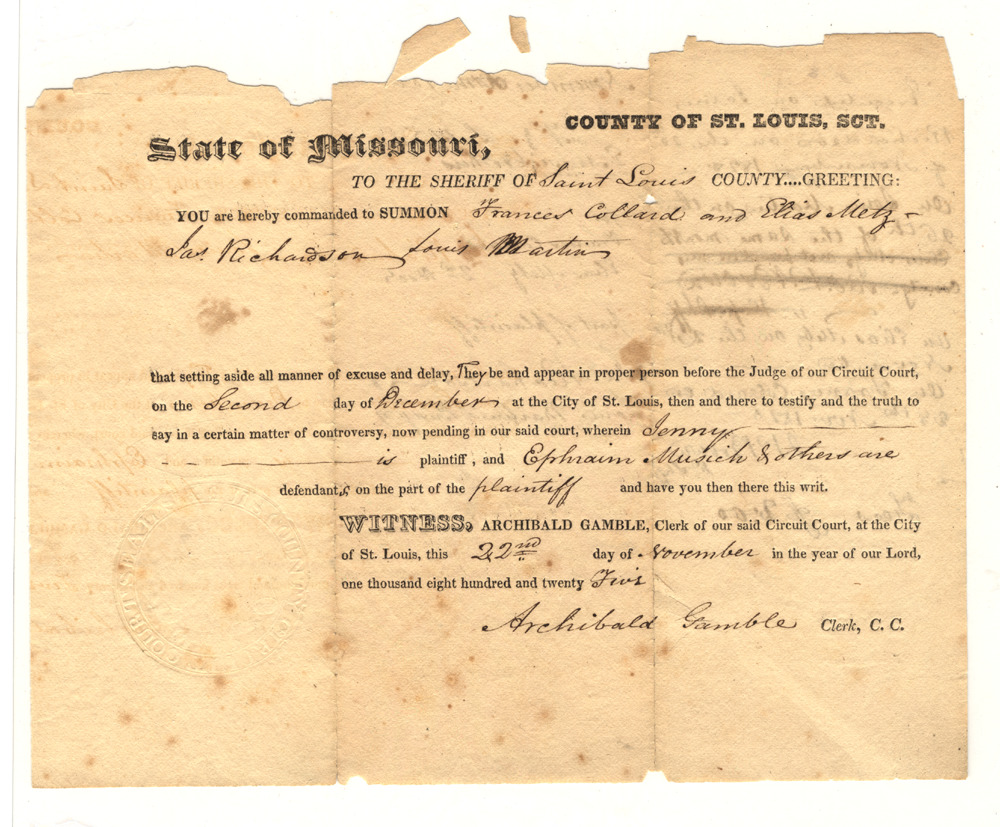 COUNTY OF ST. LOUIS, SCT.
State of Missouri,
TO THE SHERIFF OF Saint Louis COUNTY....GREETING:
YOU are hereby commanded to SUMMON Frances Collard and Elias Metz –
Jas. Richardson Louis Martin
that setting aside all manner of excuse and delay, They be and appear in proper person before the Judge of our Circuit Court,
on the Second day of December at the City of St. Louis, then and there to testify and the truth to
say in a certain matter of controversy, now pending in our said court, wherein Jenny
is plaintiff, and Ephraim Musick & others are
defendant,s on the part of the plaintiff and have you then there this writ.
WITNESS, ARCHIBALD GAMBLE, Clerk of our said Circuit Court, at the City
of St. Louis, this 22nd day of November in the year of our Lord,
one thousand eight hundred and twenty Five
Archibald Gamble Clerk, C. C.